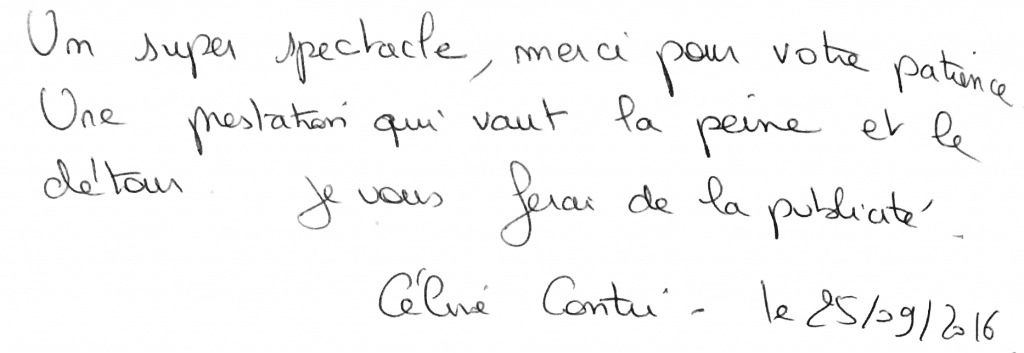 Un super spectacle, merci pour votre patience
Une prestation qui vaut la peine et le
détour je vous ferai de la publicité.
Céline Contui - le 25/09/2016